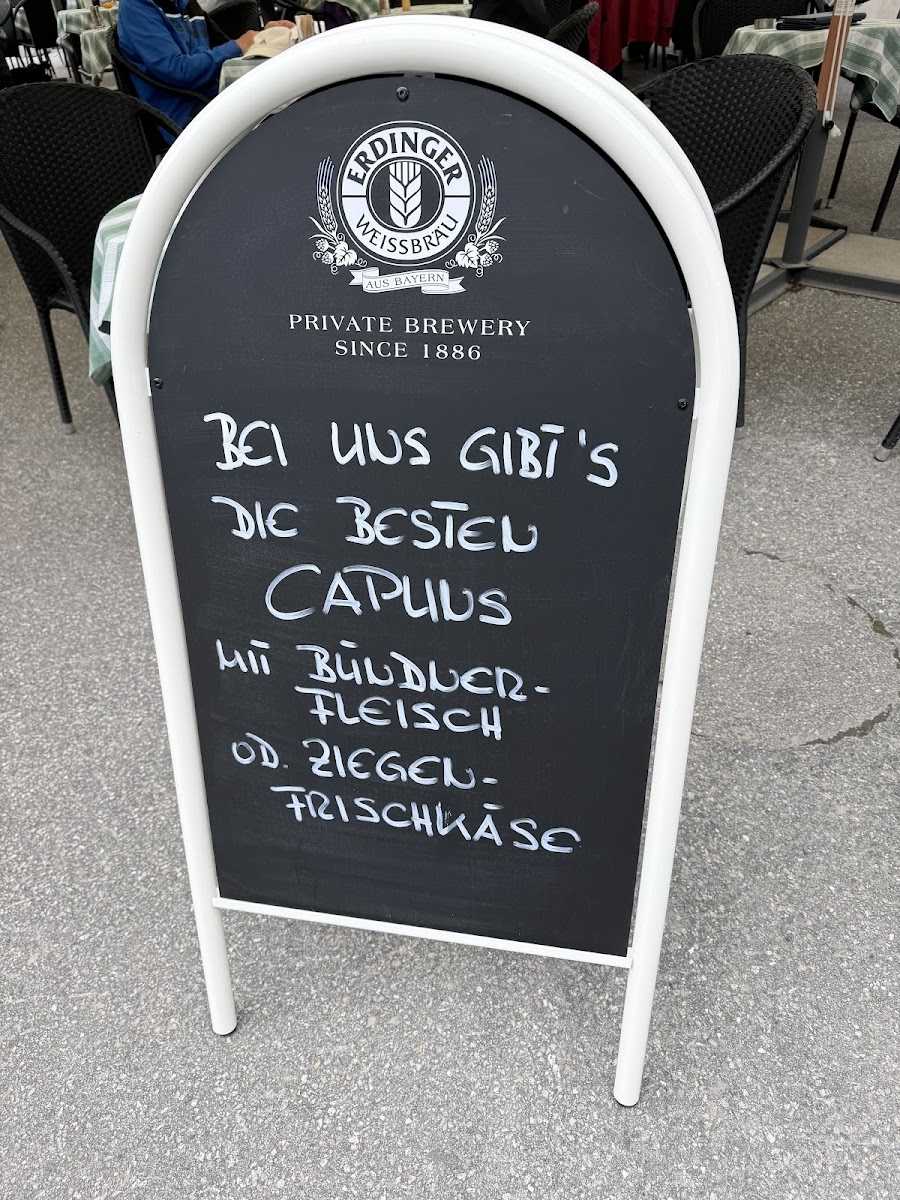 ERDINGER
WEISSBRÄU
AUS BAYERN
PRIVATE BREWERY
SINCE 1886
BEI UNS GIBT'S
DIE BESTEN
CAPUNS
MIT BÜNDNER-
FLEISCH
OD. ZIEGEN-
FRISCHKÄSE